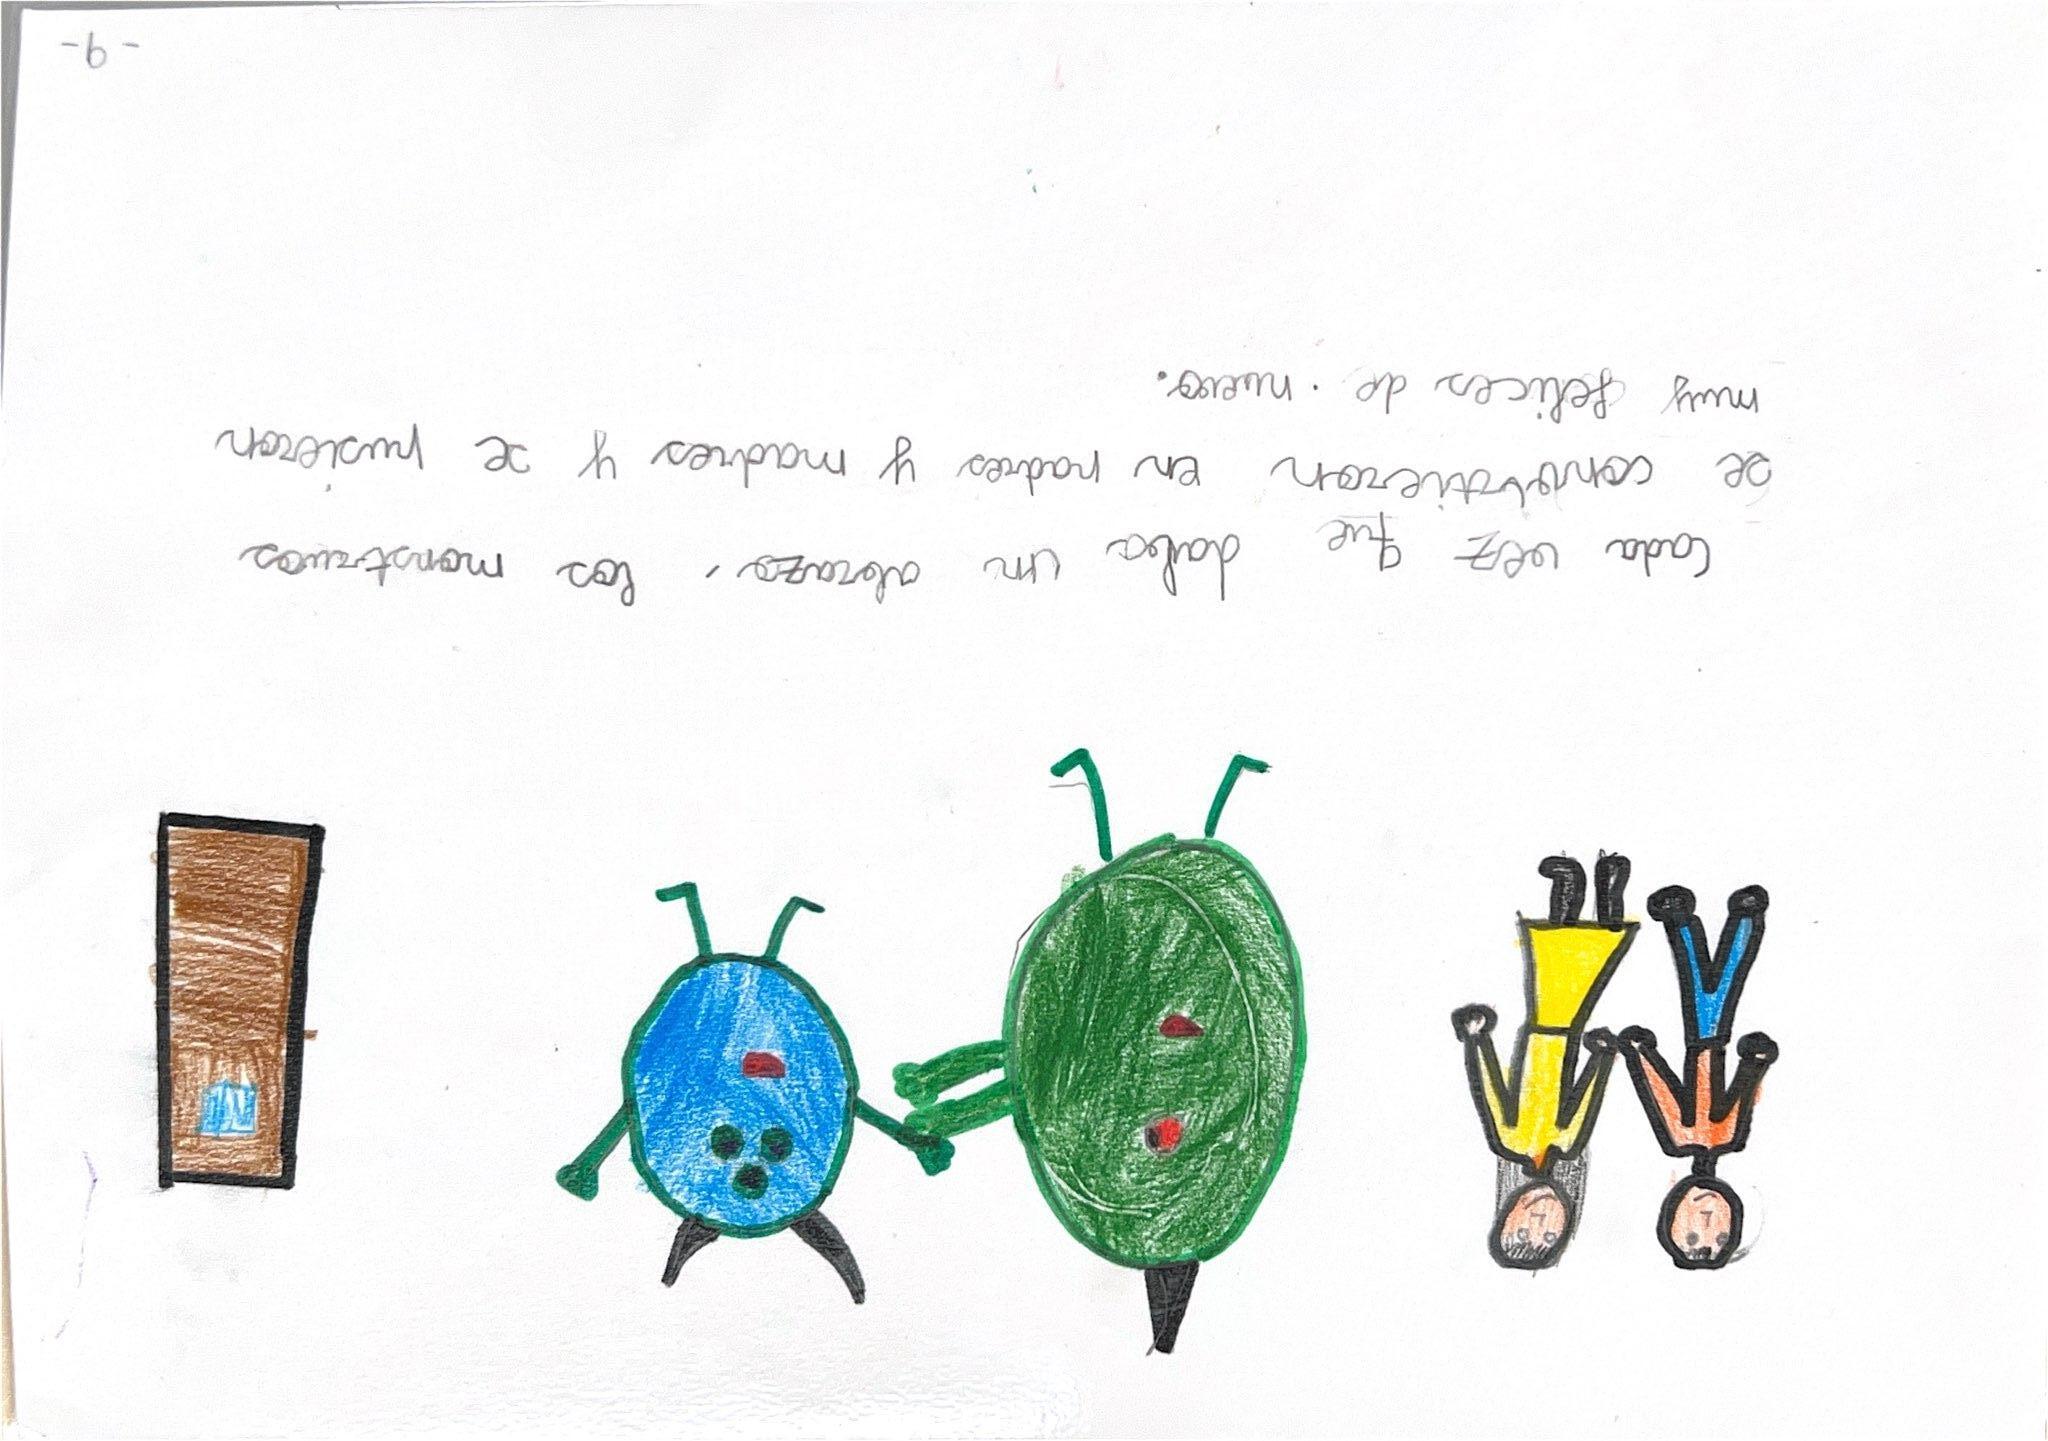 Cada vez que daba un abrazo, los monstruos
se convirtieron en padres y madres y se pusieron
muy felices de nuevo.
-9-